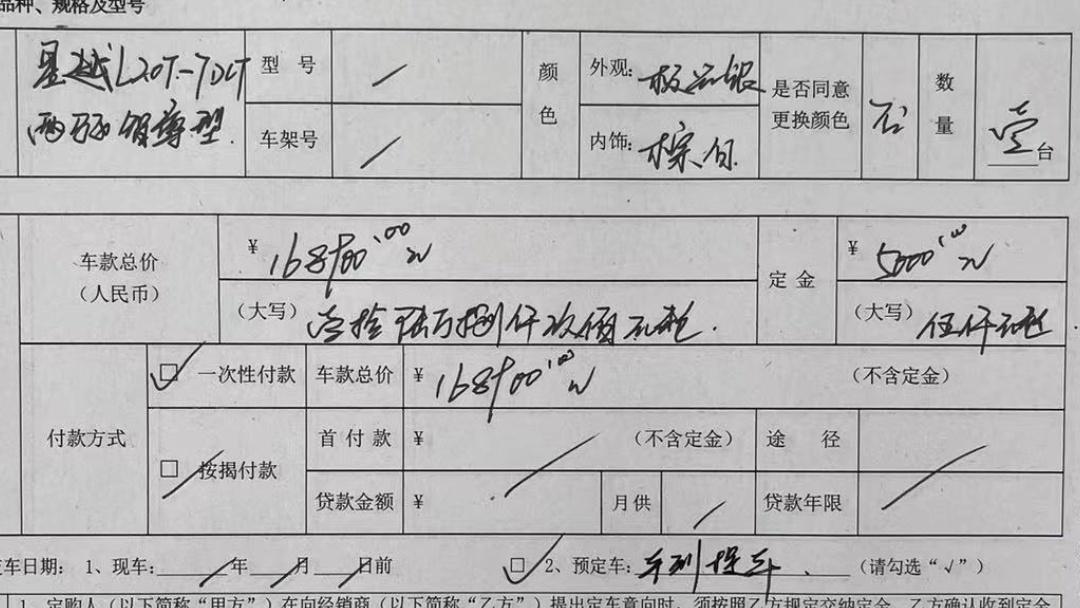 品种、规格及型号
星越L2.0T-7DCT
两驱领尊型.
型 号 /
车架号 /
颜色
外观: 极光银
内饰: 棕白
是否同意更换颜色
否
数量
壹台
车款总价（人民币）
¥ 168900.00元
（大写） 壹拾陆万捌仟玖佰元整.
定 金
¥ 5000.00元
（大写） 伍仟元整
付款方式
☑ 一次性付款 车款总价 ¥ 168900.00元 （不含定金）
□ 按揭付款 首 付 款 ¥ （不含定金） 途 径
贷款金额 ¥ 月供 / 贷款年限
交车日期: 1、现车: 年 月 日前 ☑ 2、预定车: 车到提车 （请勾选“√”）
1、定购人（以下简称“甲方”）在向经销商（以下简称“乙方”）提出定车意向时，须按照乙方规定交纳定金，乙方确认收到定金